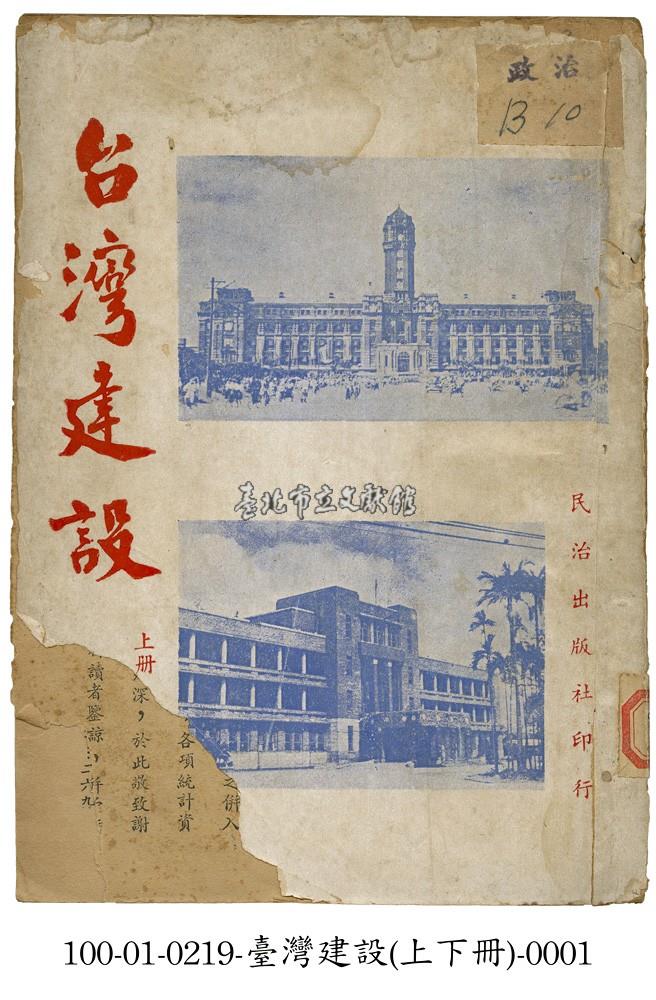 政治
B 10
台灣建設
上册
臺北市立文獻館
民治出版社印行
之併入
各項統計資
深，於此敬致謝
讀者鑒諒
100-01-0219-臺灣建設(上下冊)-0001